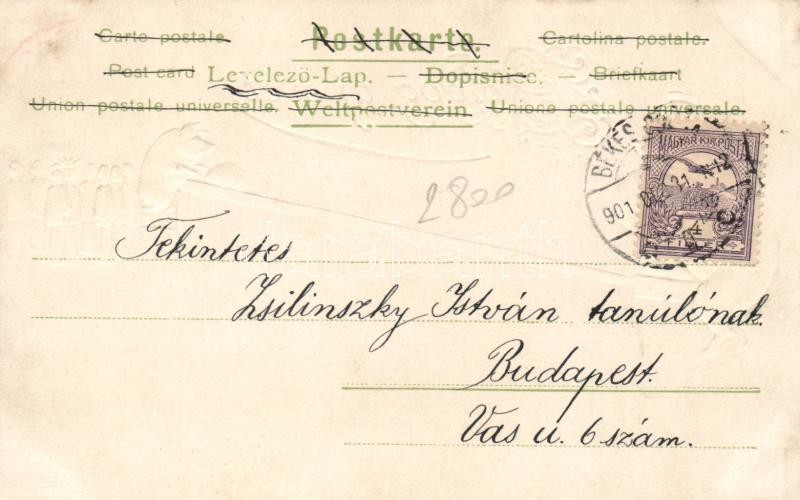 Carte postale. Postkarte. Cartolina postale.
Post card Levelező-Lap. — Dopisnice. — Briefkaart
Union postale universelle. Weltpostverein. Unione postale universale.
MAGYAR KIR. POSTA
4
FILLER
BÉKÉS
901. 31. N12
2800
Tekintetes
Zsilinszky István tanúlónak.
Budapest.
Vas u. 6 szám.